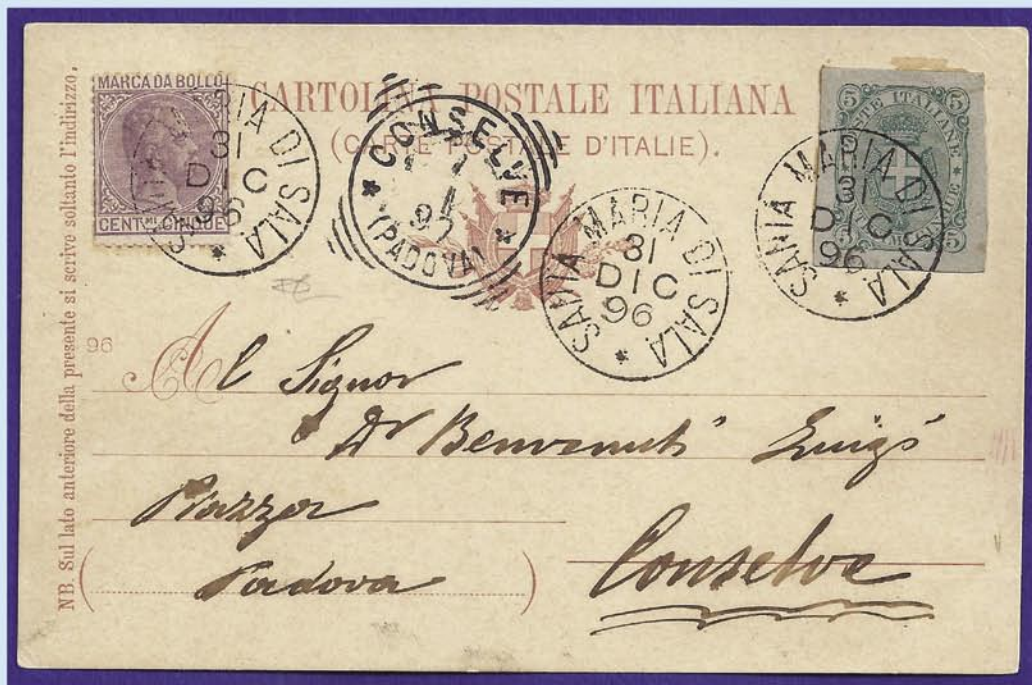 NB. Sul lato anteriore della presente si scrive soltanto l'indirizzo.
MARCA DA BOLLO
CENT.MI CINQUE
CARTOLINA POSTALE ITALIANA
(CARTE POSTALE D'ITALIE).
SANTA MARIA DI SALA
31
DIC
96
CONSELVE
1
97
(PADOVA)
SANTA MARIA DI SALA
31
DIC
96
5 5
POSTE ITALIANE
5 5
SANTA MARIA DI SALA
31
DIC
96
96
Al Signor
Dr Benvenuti Luigi
Piazza
Conselve
(Padova